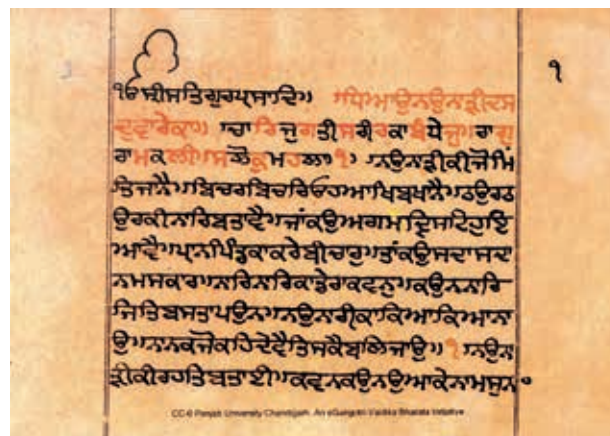 ੧
ੴ ਸ੍ਰੀਸਤਿਗੁਰਪ੍ਰਸਾਦਿ॥ ਅਧਿਆਉਨਉਨਡ੍ਰੀਦਸ
ਦੁਵਾਰੇਕਾ॥ ਚਾਰਿਜੁਗਤੀਸਰੀਰਕਾਬੰਧੇਜੁ॥ਰਾਗੁ
ਰਾਮਕਲੀ॥ਸਲੋਕੁਮਹਲਾ੧॥ ਨਉਨਡ੍ਰੀਕੀਜੋਮਿ
ਤਿਜਾਨੈ॥ਬਿਚਰਬਿਚਰਿਓਹਆਖਿਬਖਾਨੈ॥ਠਉਰਠ
ਉਰਕੀਨਾਰਿਬਤਾਵੈ॥ਜਾਂਕਉਅਗਮਦ੍ਰਿਸਟਿਹੁਇ
ਆਵੈ॥ਪ੍ਰਾਨਪਿੰਡੁਕਾਕਰੇਬੀਚਾਰੁ॥ਤਾਂਕਉਸਦਾਸਦਾ
ਨਮਸਕਾਰ॥ਨਾਰਿਨਾਰਿਕਾਤੇਰਾਕਵਨੁ॥ਕਉਨਨਾਰਿ
ਜਿਤਿਬਸਤਾਪਉਨ॥ਨਉਨਾਰੀਕਾਕਿਆਕਿਆਨਾ
ਉ॥ਨਾਨਕਜੋਕਹਿਦੇਵੈਤਿਸਕੈਬਲਿਜਾਉ॥੧॥ਨਉਨ
ਡ੍ਰੀਕੀਰਹਤਿਬਤਾਈ॥ਕਵਨਕਉਨਉਆਕੇਨਾਮਸੁਨ
CC-0 Panjab University Chandigarh. An eGangotri-Vaidika Bharata Initiative